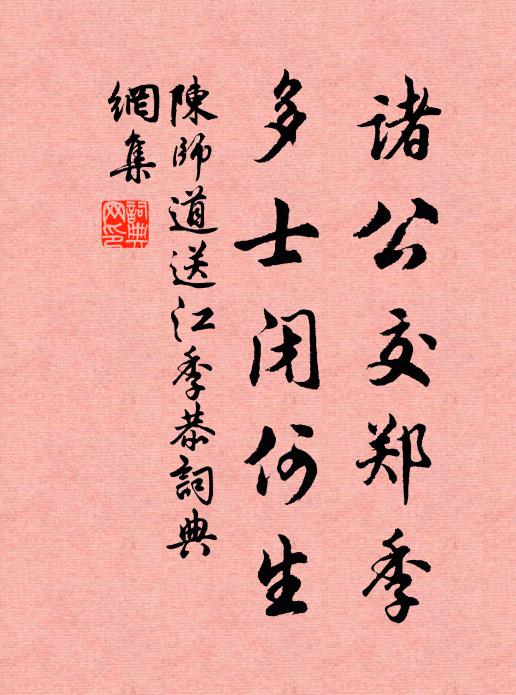 諸公交郑季
多士闭何生
陳師道送江季恭詞典
網集
詞典
网印